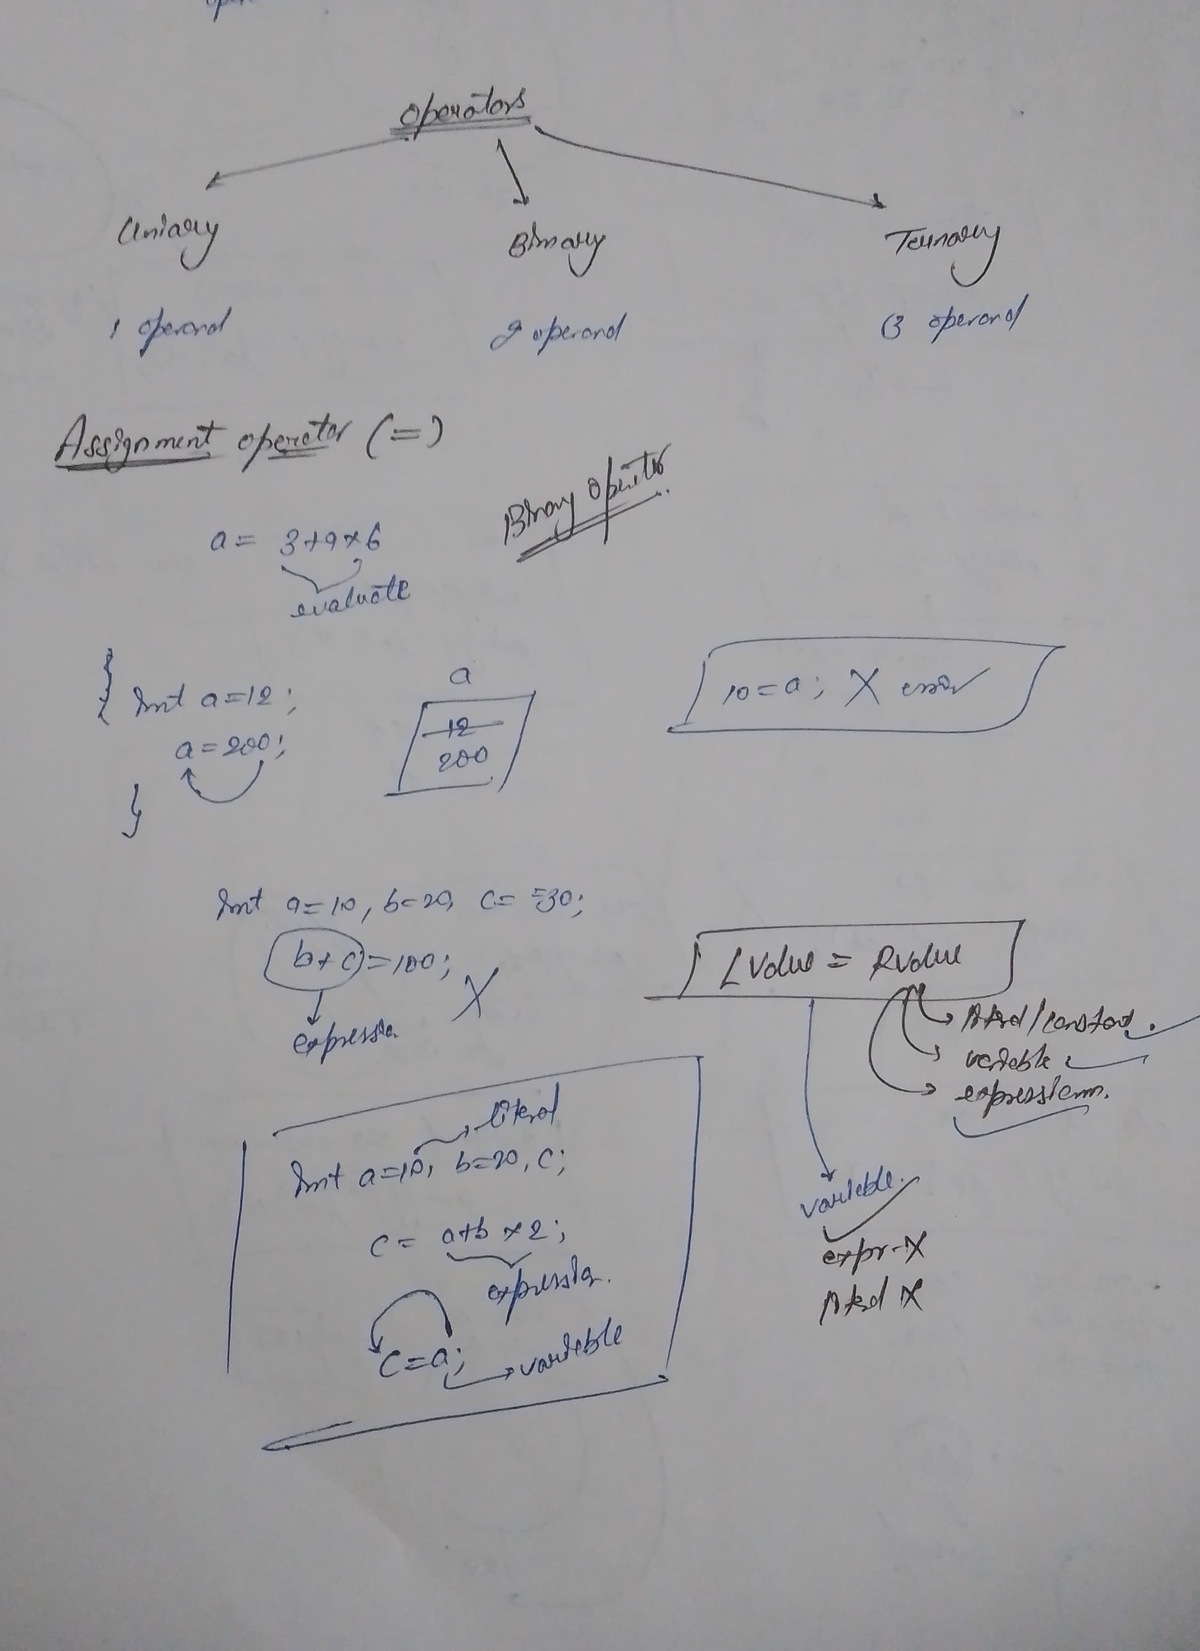 operators
Uniary Binary Ternary
1 operand 2 operand 3 operand
Assignment operator (=)
Binary opretor
a = 3+9×6
evaluate
{
Int a=12;
a=200;
}
a
12
200
10=a; X error
Int a=10, b=20, c= 30;
b+c=100; X
expression
Lvalue = Rvalue
literal/constant.
variable
expression.
variable.
expr-X
literal X
literal
Int a=10, b=20, c;
c= a+b ×2;
expression.
c=a;
variable